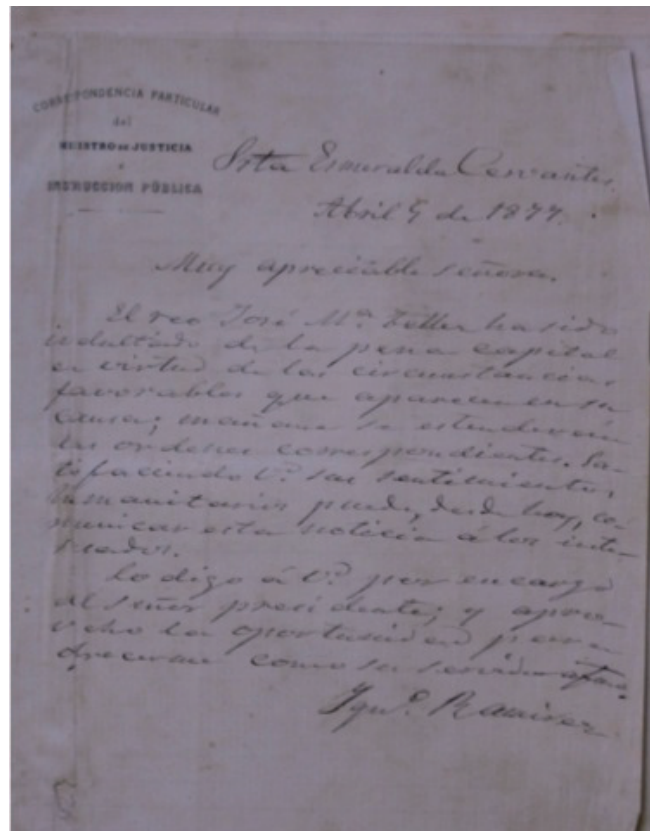 CORRESPONDENCIA PARTICULAR
del
MINISTRO DE JUSTICIA
é
INSTRUCCION PÚBLICA
Srta Esmeralda Cervantes.
Abril 5 de 1877.
Muy apreciable señora.
El reo José Mª Teller ha sido
indultado de la pena capital
en virtud de las circunstancias
favorables que aparecen en su
causa; mañana se estenderán
las ordenes correspondientes. Sa-
tisfaciendo Vd. sus sentimientos
humanitarios puede, desde hoy, co-
municar esta noticia á los inte-
resados.
Lo digo á Vd. por encargo
del señor presidente; y apro-
vecho la oportunidad para
ofrecerme como su servidor afmo.
Igno. Ramirez